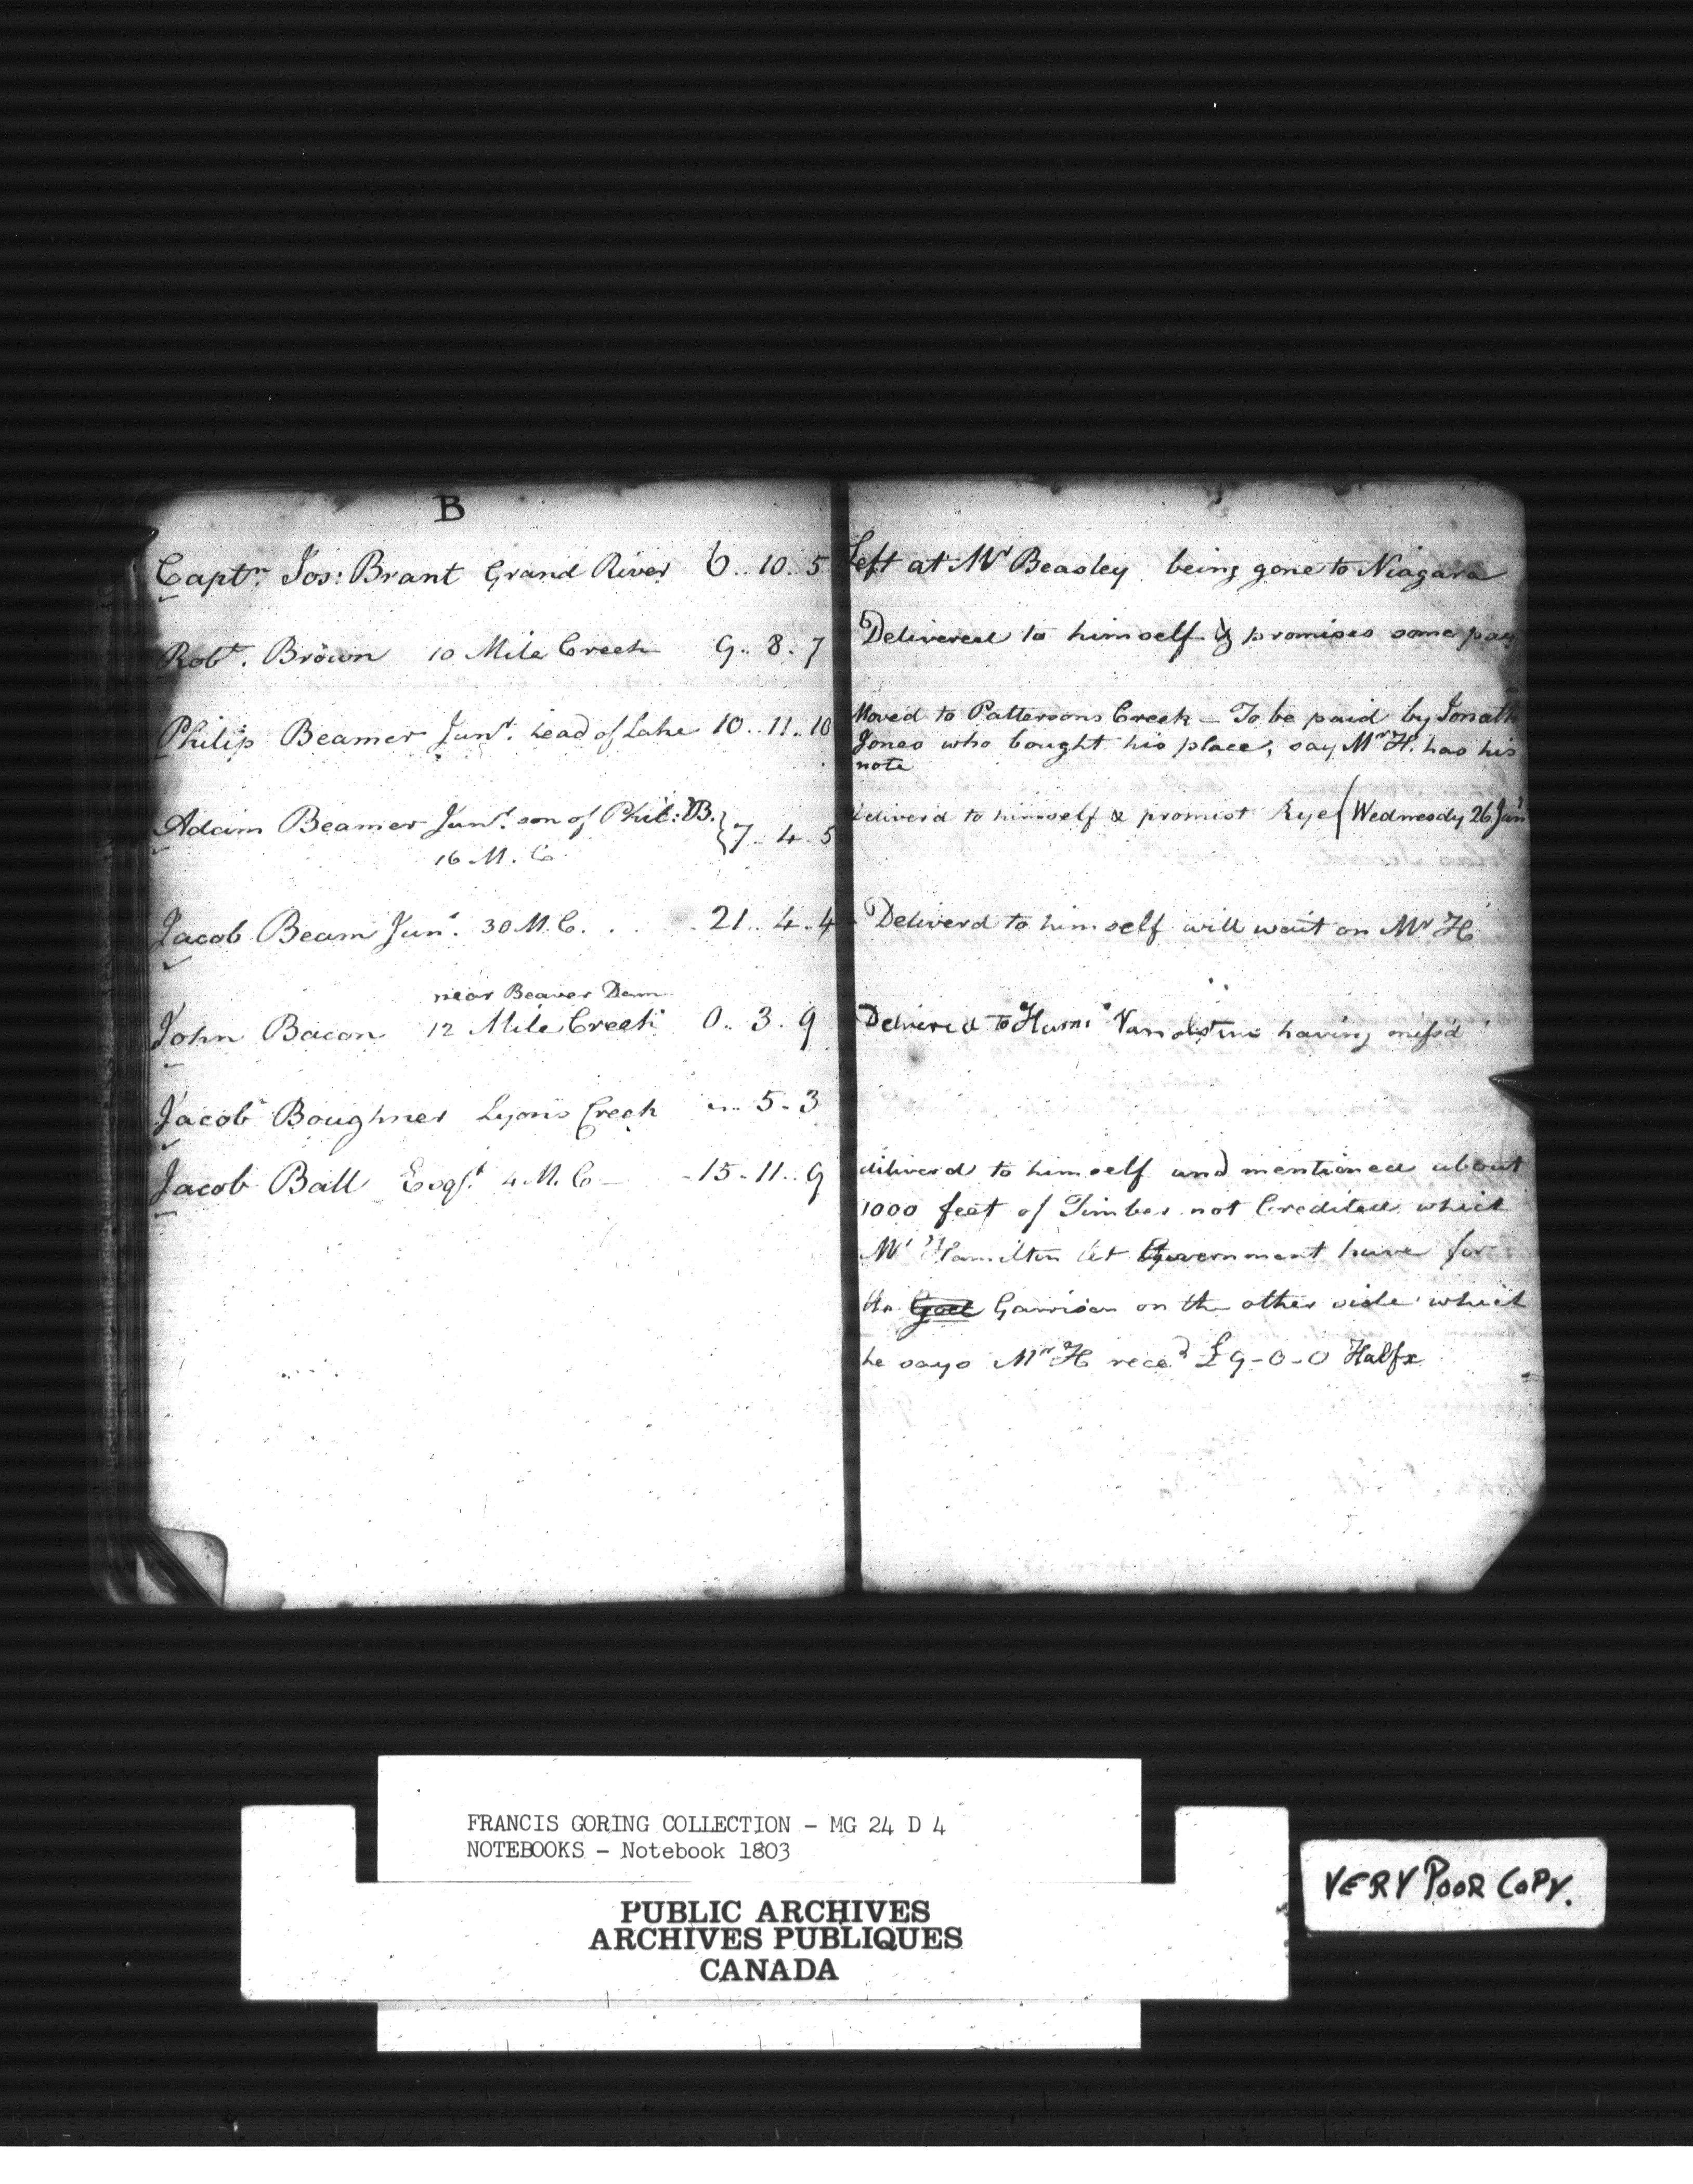 B
Captn. Jos: Brant Grand River 6..10..5
Left at Mr Beasley being gone to Niagara
Robt. Brown 10 Mile Creek 9..8.7
Delivered to himself & promises some pay
Philip Beamer Junr. head of Lake 10..11..10
Moved to Pattersons Creek – To be paid by Jonath
Jones who bought his place, say Mr H. has his
note
Adam Beamer Junr. son of Phil: B. } 7..4..5
16 M. C.
deliverd to himself & promist Rye ( Wednesdy 26 Jany
Jacob Beam Junr. 30 M. C. . . . 21..4..4
- Deliverd to himself will wait on Mr H
near Beaver Dam
John Bacon 12 Mile Creek 0..3.9
Delivered to Vanolstine having miss'd
Jacob Boughner Lyons Creek "..5.3
Jacob Ball Esqr. 4 M. C – -15.11..9
deliverd to himself and mentioned about
1000 feet of Timber not Credited which
Mr Hamilton let Government have for
the Garrison on the other side which
he says Mr H recd £9-0-0 Halfx
FRANCIS GORING COLLECTION - MG 24 D 4
NOTEBOOKS - Notebook 1803
PUBLIC ARCHIVES
ARCHIVES PUBLIQUES
CANADA
VERY POOR COPY.